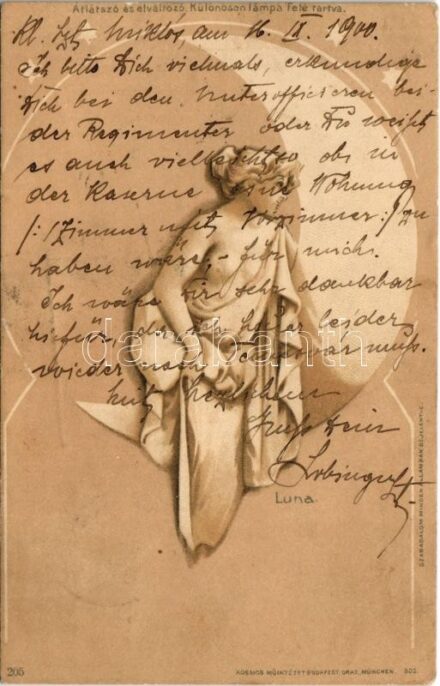 Átlátszó és elváltozó. Különösen lámpa felé tartva.
Kl. Szt. Miklós, am 16. IX. 1900.
Ich bitte Dich vielmals, erkundige
Dich bei den Unterofficieren bei-
der Regimenter oder Du weißt
es auch vielleicht so, ob in
der Kaserne eine Wohnung
/:Zimmer mit Vorzimmer:/ zu
haben wäre, - für mich.
Ich wäre Dir sehr dankbar
hiefür, da ich leider
wieder nach muss.
herzlichem
Gruss Dein
darabanth
Luna.
SZABADALOM MINDEN ÁLLAMBAN BEJELENTVE.
205
KOSMOS MŰINTÉZET BUDAPEST, GRAZ, MÜNCHEN. 502.